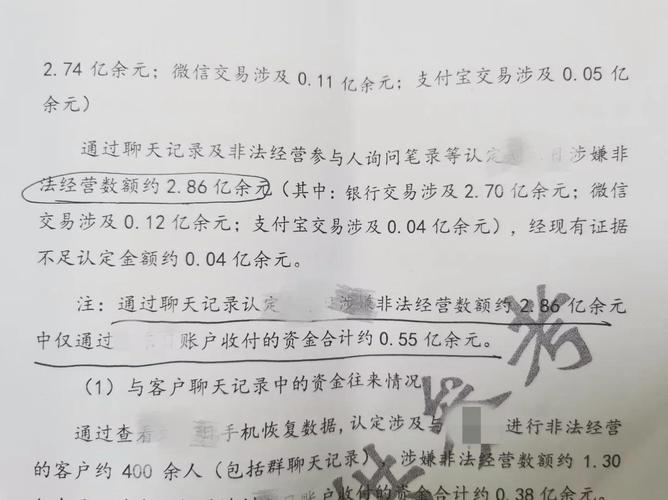 2.74 亿余元；微信交易涉及 0.11 亿余元；支付宝交易涉及 0.05 亿
余元）
通过聊天记录及非法经营参与人询问笔录等认定 涉嫌非
法经营数额约 2.86 亿余元（其中：银行交易涉及 2.70 亿余元；微信
交易涉及 0.12 亿余元；支付宝交易涉及 0.04 亿余元），经现有证据
不足认定金额约 0.04 亿余元。
注：通过聊天记录认定 涉嫌非法经营数额约 2.86 亿余元
中仅通过 账户收付的资金合计约 0.55 亿余元。
（1）与客户聊天记录中的资金往来情况
通过查看 手机恢复数据，认定涉及与 进行非法经营
的客户约 400 余人（包括群聊天记录），涉嫌非法经营数额约 1.30
账户收付的资金合计约 0.38 亿余元。